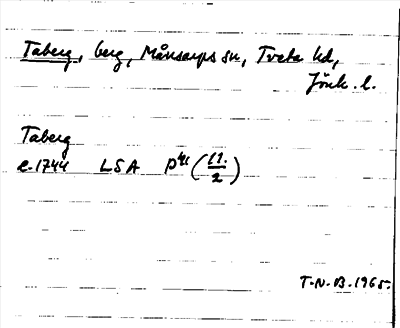 Taberg, berg, Månsarps sn, Tveta hd,
Jönk. l.
Taberg
e. 1744 LSA P 41 (11:/2)
T-N.B. 1965.